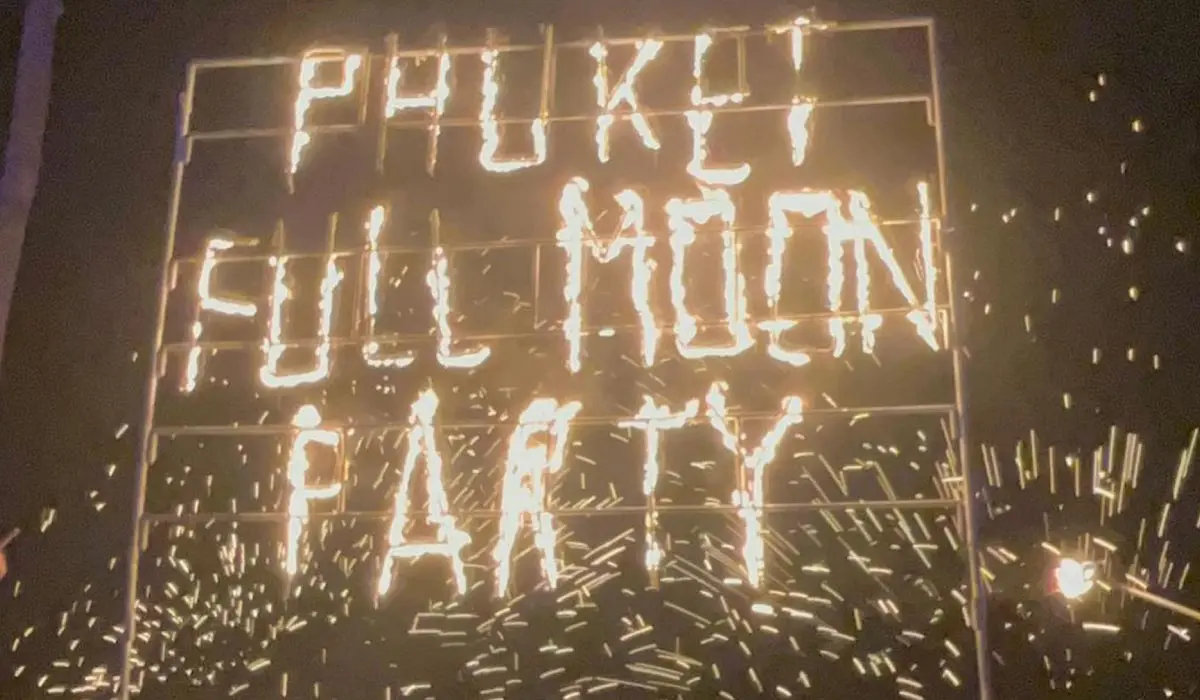 PHUKET
FULL MOON
PARTY